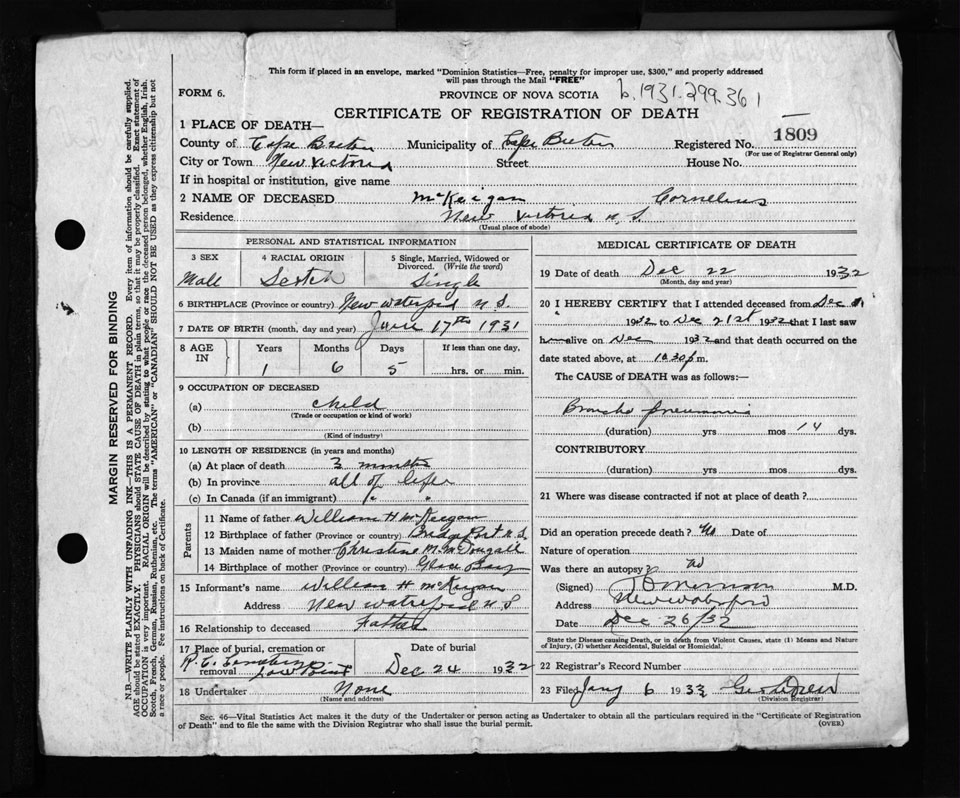 This form if placed in an envelope, marked "Dominion Statistics—Free, penalty for improper use, $300," and properly addressed
will pass through the Mail "FREE"
FORM 6.
PROVINCE OF NOVA SCOTIA
b.1931.299.361
CERTIFICATE OF REGISTRATION OF DEATH
1 PLACE OF DEATH—
1809
County of Cape Breton Municipality of Cape Breton Registered No.
(For use of Registrar General only)
City or Town New Victoria Street House No.
If in hospital or institution, give name
2 NAME OF DECEASED McKeigan Cornelius
Residence New Victoria N.S.
(Usual place of abode)
PERSONAL AND STATISTICAL INFORMATION
3 SEX 4 RACIAL ORIGIN 5 Single, Married, Widowed or
Divorced. (Write the word)
Male Scotch Single
6 BIRTHPLACE (Province or country) New Waterford N.S.
7 DATE OF BIRTH (month, day and year) June 17th 1931
8 AGE IN Years Months Days If less than one day,
1 6 5 hrs. or min.
9 OCCUPATION OF DECEASED
(a) child
(Trade or occupation or kind of work)
(b)
(Kind of industry)
10 LENGTH OF RESIDENCE (in years and months)
(a) At place of death 3 months
(b) In province all of life
(c) In Canada (if an immigrant) " "
Parents
11 Name of father William H McKeigan
12 Birthplace of father (Province or country) Bridgeport N.S.
13 Maiden name of mother Christine M. McDougall
14 Birthplace of mother (Province or country) Glace Bay
15 Informant's name William H McKeigan
Address New Waterford N.S
16 Relationship to deceased Father
17 Place of burial, cremation or removal Date of burial
R.C. Cemetery Low Point Dec 24 1932
18 Undertaker None
(Name and address)
MEDICAL CERTIFICATE OF DEATH
19 Date of death Dec 22 1932
(Month, day and year)
20 I HEREBY CERTIFY that I attended deceased from Dec
1932 to Dec 21st 1932 that I last saw
h alive on Dec 1932 and that death occurred on the
date stated above, at 10.30 p.m.
The CAUSE of DEATH was as follows:—
Broncho pneumonia
(duration) yrs mos 14 dys.
CONTRIBUTORY
(duration) yrs mos dys.
21 Where was disease contracted if not at place of death?
Did an operation precede death? No Date of
Nature of operation
Was there an autopsy? No
(Signed) M.D.
Address New Waterford
Date Dec 26/32
State the Disease causing Death, or in death from Violent Causes, state (1) Means and Nature
of Injury, (2) whether Accidental, Suicidal or Homicidal.
22 Registrar's Record Number
23 Filed Jany 6 1933
(Division Registrar)
Sec. 46—Vital Statistics Act makes it the duty of the Undertaker or person acting as Undertaker to obtain all the particulars required in the "Certificate of Registration
of Death" and to file the same with the Division Registrar who shall issue the burial permit.
(OVER)
MARGIN RESERVED FOR BINDING
N.B.—WRITE PLAINLY WITH UNFADING INK—THIS IS A PERMANENT RECORD. Every item of information should be carefully supplied.
AGE should be stated EXACTLY. PHYSICIANS should STATE CAUSE OF DEATH in plain terms, so that it may be properly classified. Exact statement of
OCCUPATION is very important. RACIAL ORIGIN will be described by stating to what people or race the deceased person belonged, whether English, Irish,
Scotch, French, German, Russian, Ruthenian, etc. The terms "AMERICAN" or "CANADIAN" SHOULD NOT BE USED as they express citizenship but not
a race or people. Fee instructions on back of Certificate.